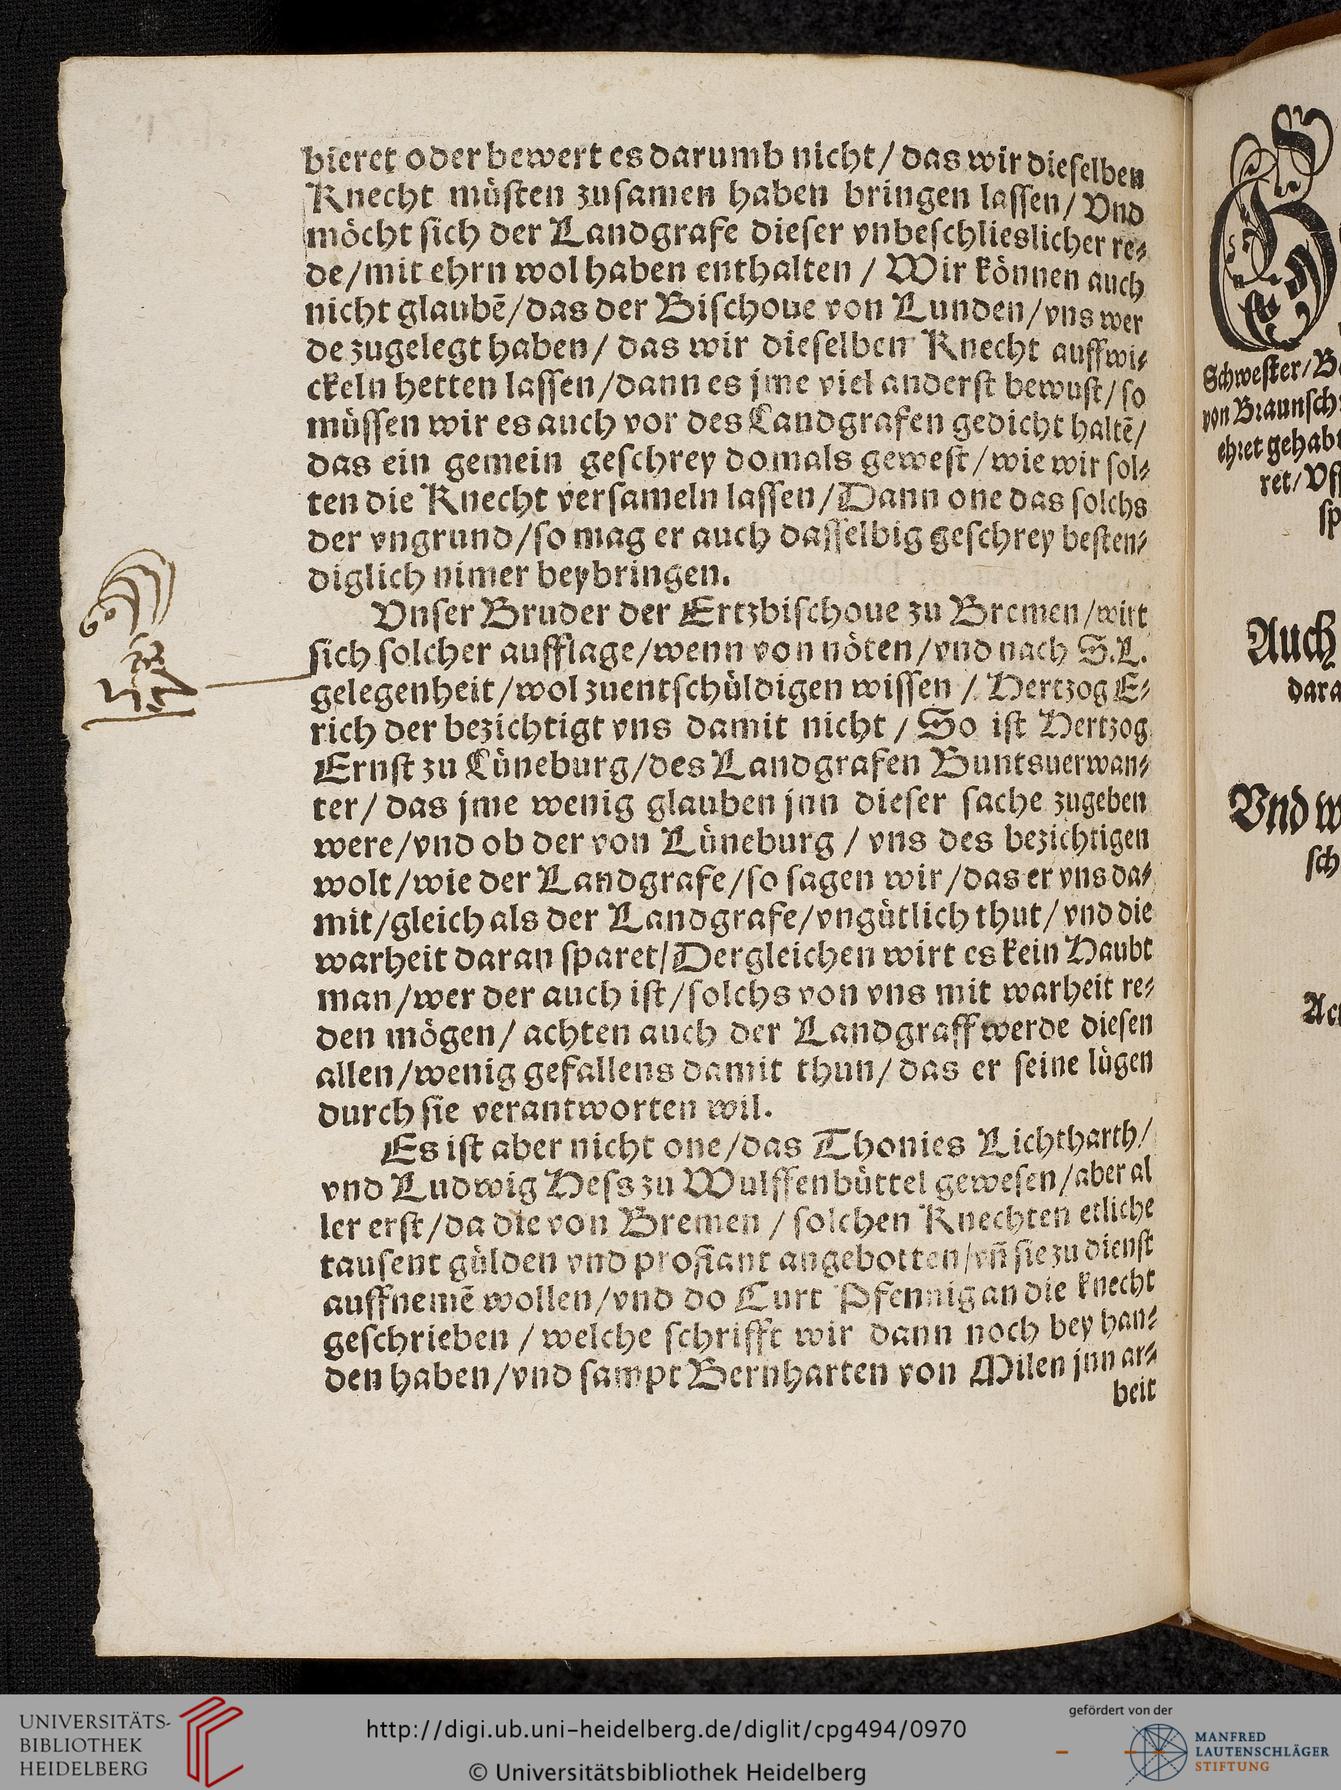 bieret oder bewert es darumb nicht/ das wir dieselben
Knecht müsten zusamen haben bringen lassen/ Vnd
möcht sich der Landgrafe dieser vnbeschlieslicher re⸗
de/mit ehrn wol haben enthalten / Wir können auch
nicht glaubē/das der Bischoue von Lunden/vns wer
de zugelegt haben/ das wir dieselben Knecht auffwi⸗
ckeln hetten lassen/dann es jme viel anderst bewust/so
müssen wir es auch vor des Landgrafen gedicht haltē/
das ein gemein geschrey domals gewest/wie wir sol⸗
ten die Knecht versameln lassen/Dann one das solchs
der vngrund/so mag er auch dasselbig geschrey besten⸗
diglich nimer beybringen.
Vnser Bruder der Ertzbischoue zu Bremen/wirt
sich solcher aufflage/wenn von nöten/vnd nach S.L.
gelegenheit/wol zuentschüldigen wissen / Hertzog E⸗
rich der bezichtigt vns damit nicht / So ist Hertzog
Ernst zu Lüneburg/des Landgrafen Buntsuerwan⸗
ter/ das jme wenig glauben jnn dieser sache zugeben
were/vnd ob der von Lüneburg / vns des bezichtigen
wolt/wie der Landgrafe/so sagen wir/das er vns da⸗
mit/gleich als der Landgrafe/vngütlich thut/ vnd die
warheit daran sparet/Dergleichen wirt es kein Haubt
man/wer der auch ist/solchs von vns mit warheit re⸗
den mögen/ achten auch der Landgraff werde diesen
allen/wenig gefallens damit thun/ das er seine lügen
durch sie verantworten wil.
Es ist aber nicht one/das Thonies Lichtharth/
vnd Ludwig Hess zu Wulffenbüttel gewesen/aber al
ler erst/da die von Bremen / solchen Knechten etliche
tausent gülden vnd profiant angebotten/vñ sie zu dienst
auffnemē wollen/vnd do Curt Pfennig an die knecht
geschrieben / welche schrifft wir dann noch bey han⸗
den haben/vnd sampt Bernharten von Milen jnn ar⸗
beit
Schwester/
von Braunsch
ehret gehabt
ret/
sp
Auch
dara
Vnd w
sch
UNIVERSITÄTS-
BIBLIOTHEK
HEIDELBERG
http://digi.ub.uni-heidelberg.de/diglit/cpg494/0970
© Universitätsbibliothek Heidelberg
gefördert von der
MANFRED
LAUTENSCHLÄGER
STIFTUNG